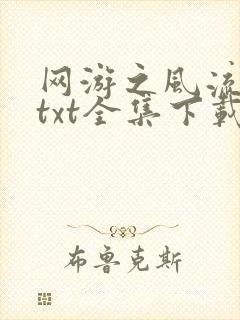 网游之风流
txt全集下载
布鲁克斯